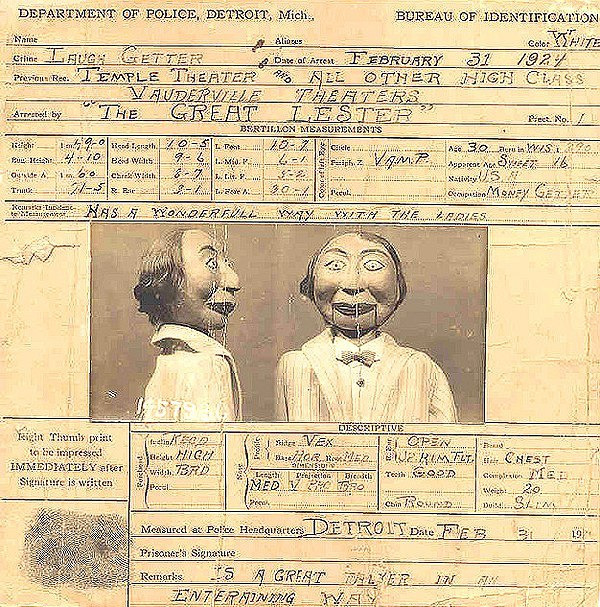 DEPARTMENT OF POLICE, DETROIT, Mich.,
BUREAU OF IDENTIFICATION
Name Aliases Color WHITE
Crime LAUGH GETTER Date of Arrest FEBRUARY 31 1924
Previous Rec. TEMPLE THEATER AND ALL OTHER HIGH CLASS
VAUDERVILLE THEATERS
Arrested by "THE GREAT LESTER" Prect. No. 1
BERTILLON MEASUREMENTS
Height 1 m 49-0 Head Length 10-5 L. Foot 10-7 Circle Age 30 Born in WIS
Eng. Height 4-10 Head Width 9-6 L. Mid. F. 6-1 Periph. Z. VAMP. Apparent Age SWEET 16
Outside A. 1 m 60 Cheek Width 8-7 5-2 Nativity U.S.A
Trunk 71-5 R. Ear 30-1 Pecul. Occupation MONEY GETTER
Remarks Incident to Measurement HAS A WONDERFULL WAY WITH THE LADIES
DESCRIPTIVE
Right Thumb print
to be impressed
IMMEDIATELY after
Signature is written
Height HIGH
Width BRD
Pecul.
Ridge VEX
Base HOR. Root MED.
DIMENSIONS
Length Projection Breadth
MED
Pecul.
OPEN
Teeth GOOD
Chin ROUND
Beard
Hair CHEST
Complexion MED
Weight 20
Build SLIM
Measured at Police Headquarters DETROIT Date FEB 31 19
Prisoner's Signature
Remarks IS A GREAT TALKER IN AN
ENTERAINING WAY